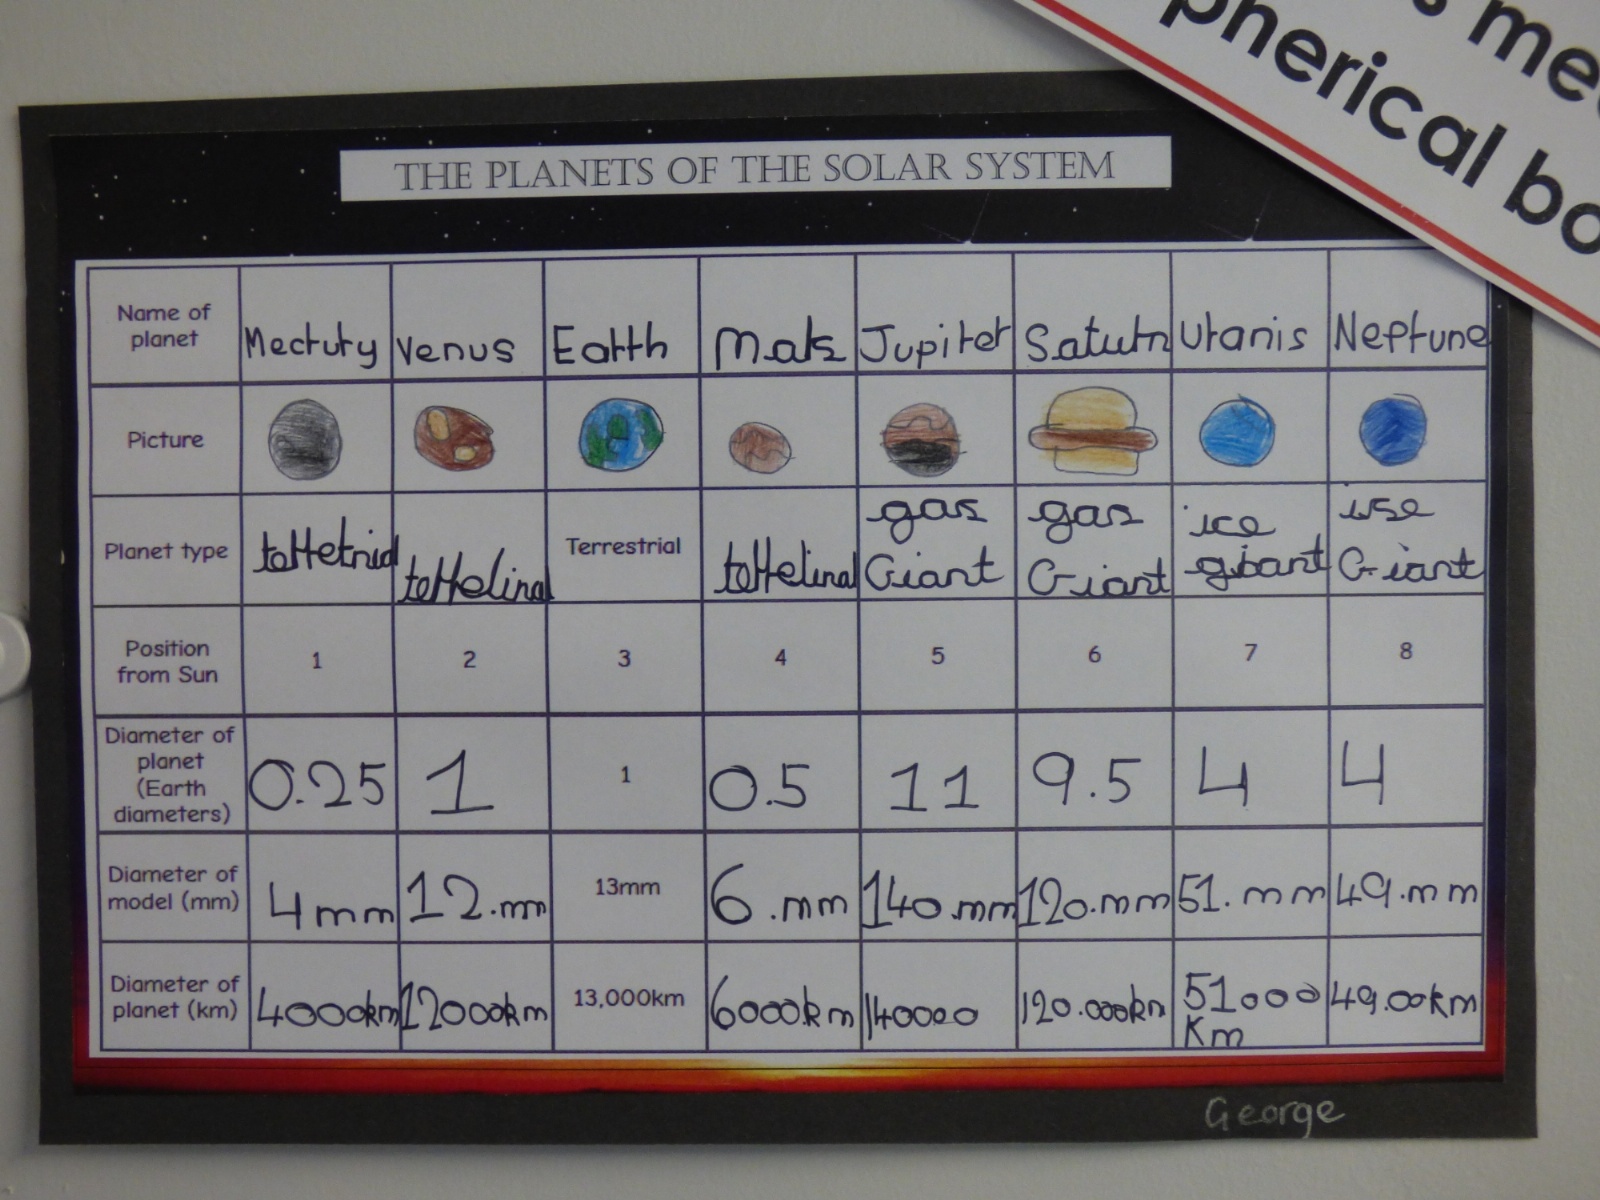 s me
pherical bo
THE PLANETS OF THE SOLAR SYSTEM
Name of planet Mecrury Venus Earth Mars Jupiter Saturn Uranis Neptune
Picture
Planet type Terrestrial gas Giant gas Giant ice giant ise Giant
Position from Sun 1 2 3 4 5 6 7 8
Diameter of planet (Earth diameters) 0.25 1 1 0.5 11 9.5 4 4
Diameter of model (mm) 4mm 12.mm 13mm 6.mm 140.mm 120.mm 51.mm 49.mm
Diameter of planet (km) 4000km 12000km 13,000km 6000km 140000 120.000km 51000 Km 49.00km
George